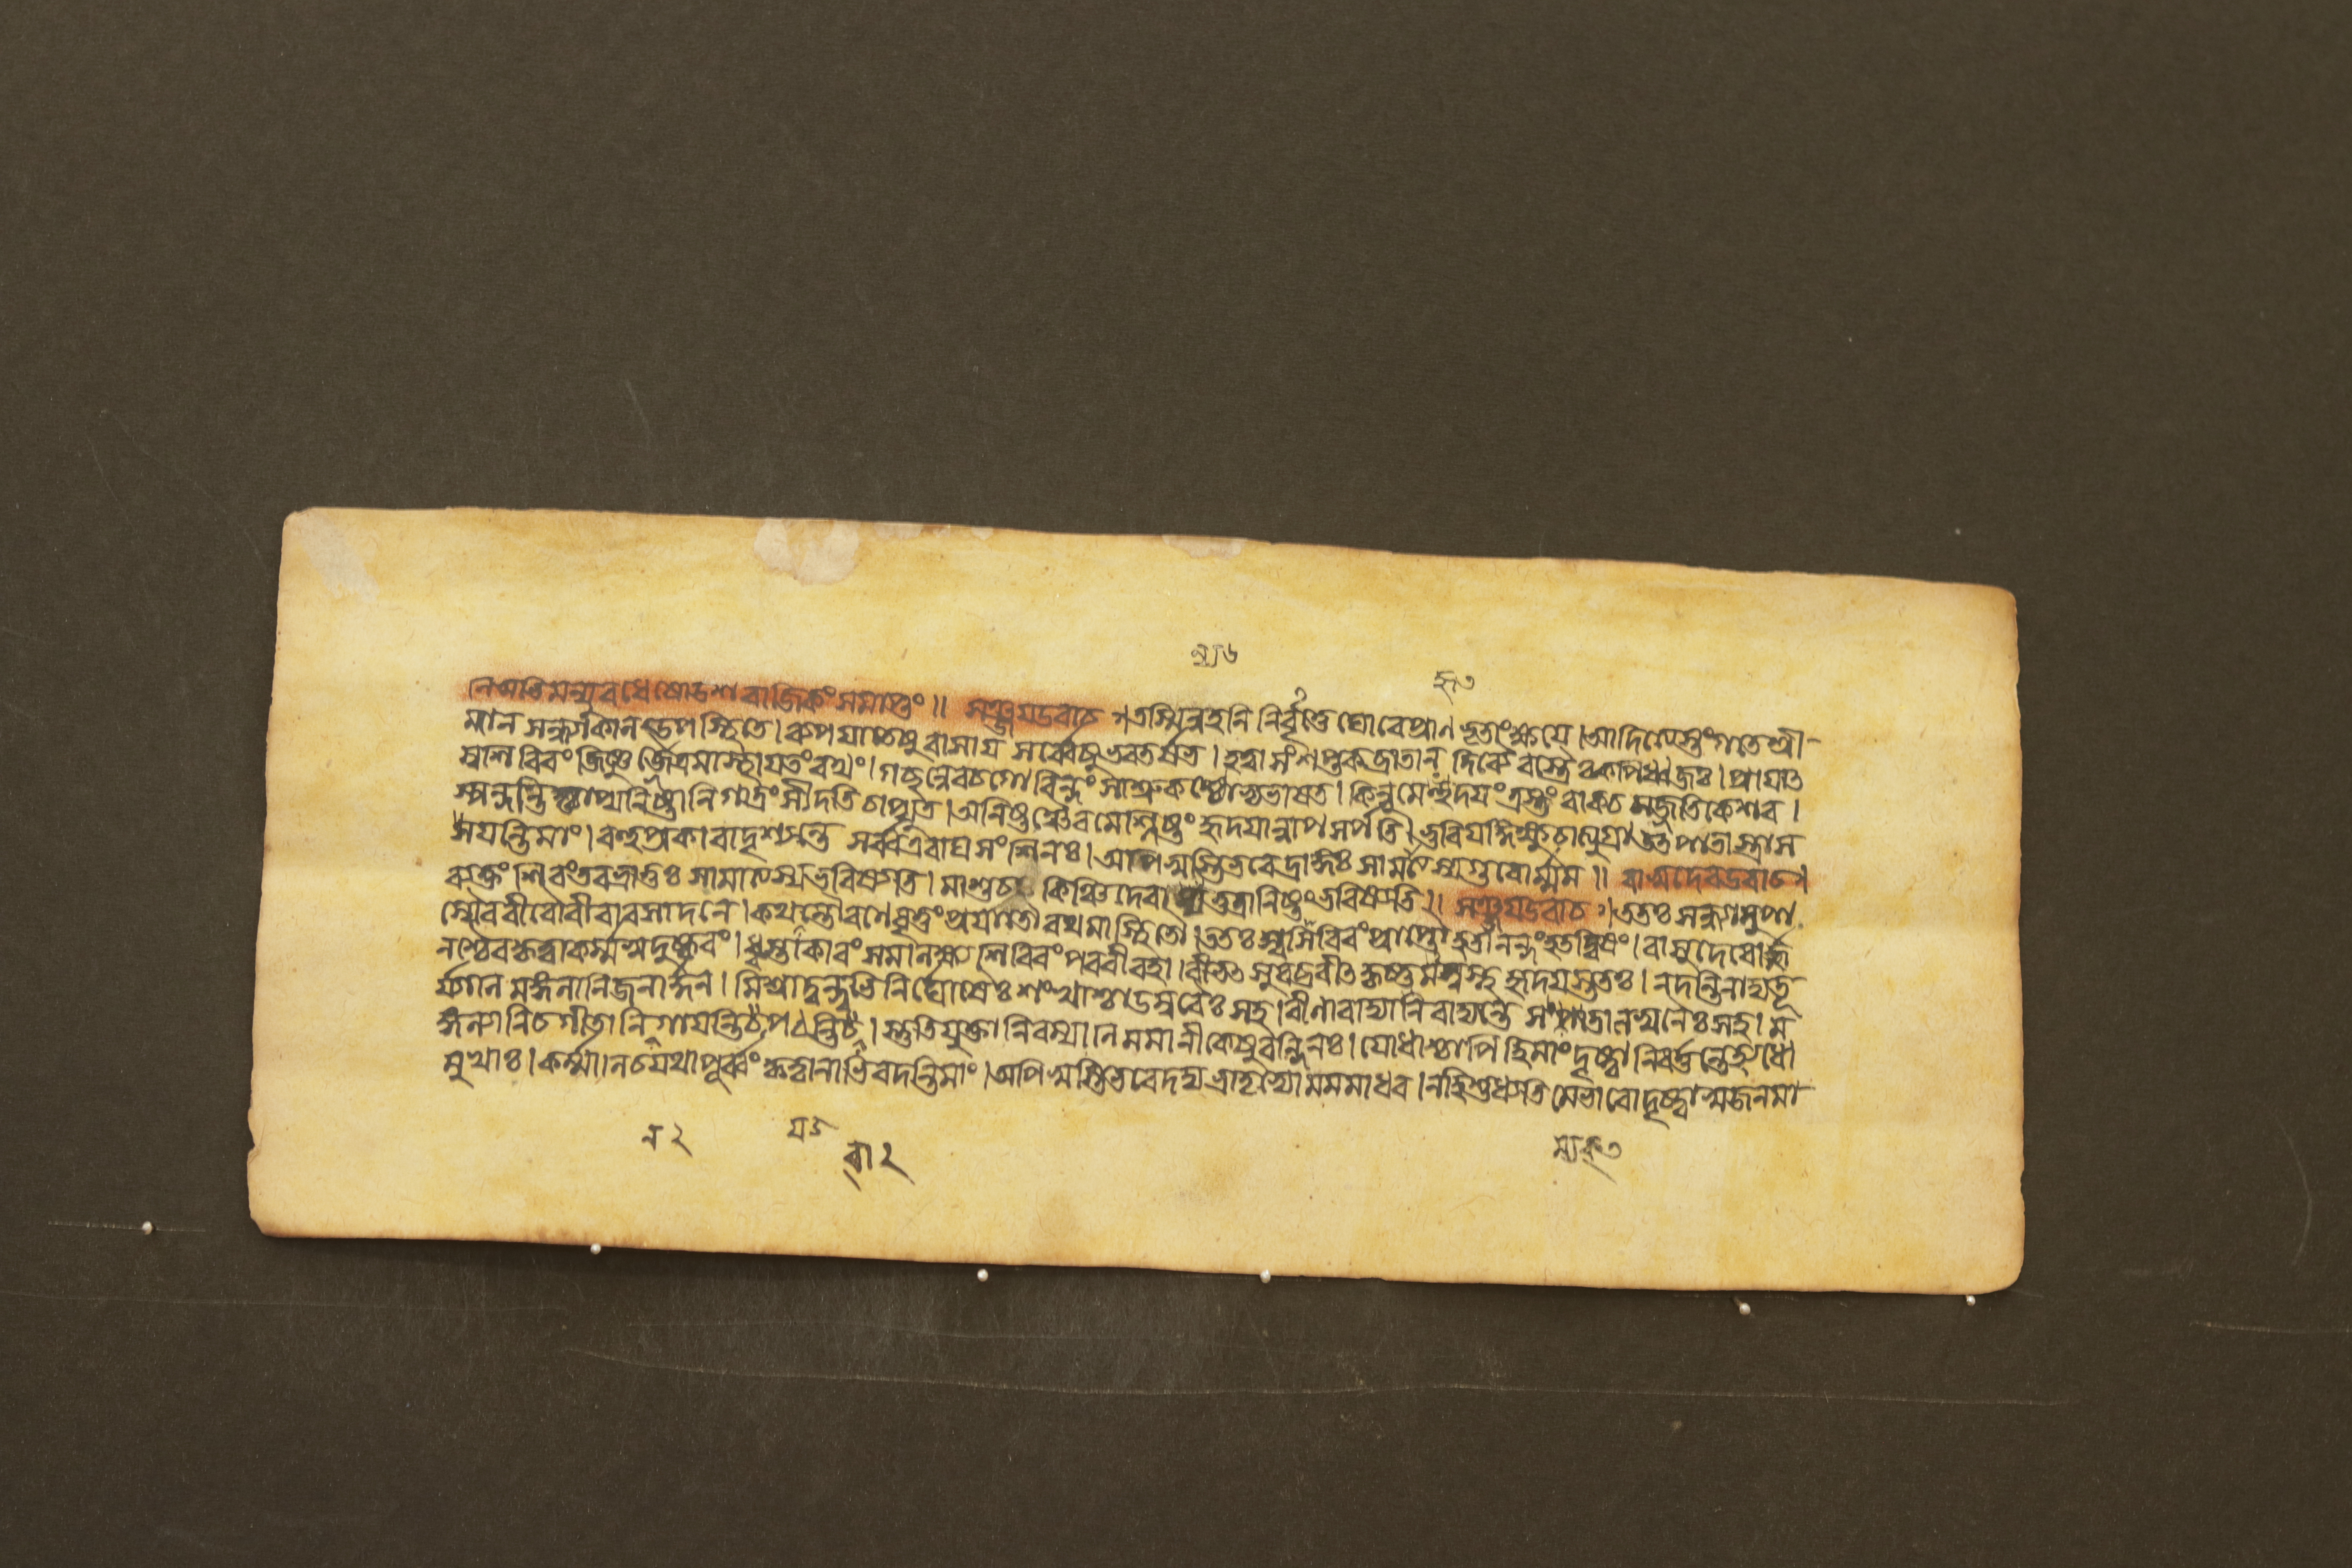 নিঅভিমন্যুবধে ষোডশরাজিকং সমাপ্তং॥ সঞ্জয উবাচ। তস্মিন্নহনি নির্বৃত্তে ঘোরে প্রাণভৃতাং ক্ষযে। আদিত্যেস্তংগতে শ্রী-
মান সন্ধ্যাকাল উপস্থিতে। ব্যপযাতেষু বাসায সর্ব্বেষু ভরতর্ষভ। হত্বা সংশপ্তকব্রাতান্ দিব্যৈরস্ত্রৈঃ কপিধ্বজঃ। প্রাযাত্
স্বশিবিরং জিষ্ণুর্জৈত্রমাস্থায তং রথং। গচ্ছন্নেব চ গোবিন্দং সাশ্রুকণ্ঠোভ্যভাষত। কিন্নু মে হৃদযং ত্রস্তং বাক্ চ সজ্জতি কেশব।
স্পন্দন্তি চাপ্যনিষ্টানি গাত্রং সীদতি চাপ্যুত। অনিষ্টঞ্চৈব মে শ্লিষ্টং হৃদযান্নাপসর্পতি। ভুবি যদ্দিক্ষু চাত্যুগ্রা উত্পাতাস্ত্রাস
যন্তি মাং। বহুপ্রকারা দৃশ্যন্তে সর্ব্ব এবাঘসংশিনঃ। অপি স্বস্তি ভবেদ্রাজ্ঞঃ সামাত্যস্য গুরোর্ম্মম॥ বাসুদেব উবাচ।
ব্যক্তং শিবং তব ভ্রাতুঃ সামাত্যস্য ভবিষ্যতি। মা শুচঃ কিঞ্চিদেবান্যত্তত্রানিষ্টং ভবিষ্যতি॥ সঞ্জয উবাচ। ততঃ সন্ধ্যামুপা
স্যৈব বীরৌ বীরাবসাদনে। কথযন্তৌ রণে বৃত্তং প্রযাতৌ রথমাস্থিতৌ। ততঃ স্বশিবিরং প্রাপ্তৌ হতানন্দং হতত্বিষং। বাসুদেবোর্জ্জু
নশ্চৈব কৃত্বা কর্ম্ম সুদুষ্করং। ধ্বস্তাকারং সমালক্ষ্য শিবিরং পরবীরহা। বীভত্সুরব্রবীত্ কৃষ্ণমস্বস্থহৃদযস্ততঃ। নদন্তি নাদ্য তূ
র্যাণি মঙ্গলানি জনার্দ্দন। মিশ্রা দুন্দুভিনির্ঘোষৈঃ শংখাশ্চাডম্বরৈঃ সহ। বীণা বাদ্যানি বাদ্যন্তে সংপাতালস্বনৈঃ সহ। ম
ঙ্গল্যানি চ গীতানি ন গাযন্তি পঠন্তি চ। স্তুতিযুক্তানি রম্যাণি মমানীকেষু বন্দিনঃ। যোধাশ্চাপি হি মাং দৃষ্ট্বা নিবর্ত্তন্তে হ্যধো
মুখাঃ। কর্ম্মাণি চ যথাপূর্ব্বং কৃত্বা নাভিবদন্তি মাং। অপি স্বস্তি ভবেদদ্য ভ্রাতৃভ্যো মম মাধব। নহি শুধ্যতি মে ভাবো দৃষ্ট্বা স্বজনমা